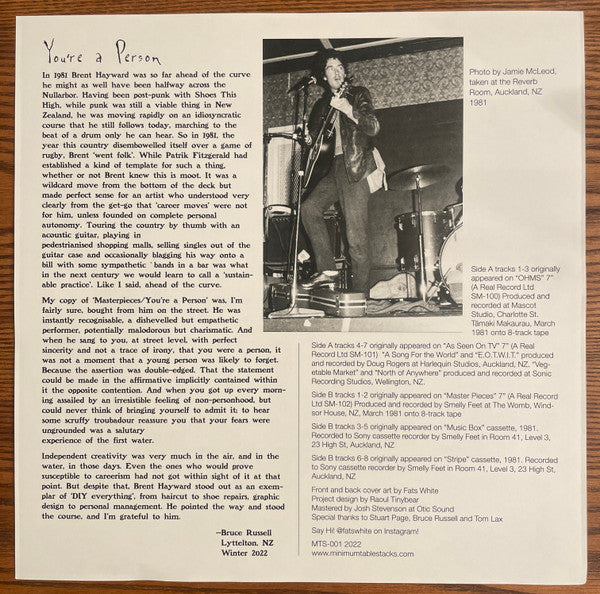 You're a Person
In 1981 Brent Hayward was so far ahead of the curve
he might as well have been halfway across the
Nullarbor. Having been post-punk with Shoes This
High, while punk was still a viable thing in New
Zealand, he was moving rapidly on an idiosyncratic
course that he still follows today, marching to the
beat of a drum only he can hear. So in 1981, the
year this country disembowelled itself over a game of
rugby, Brent 'went folk'. While Patrik Fitzgerald had
established a kind of template for such a thing,
whether or not Brent knew this is moot. It was a
wildcard move from the bottom of the deck but
made perfect sense for an artist who understood very
clearly from the get-go that 'career moves' were not
for him, unless founded on complete personal
autonomy. Touring the country by thumb with an
acoustic guitar, playing in
pedestrianised shopping malls, selling singles out of the
guitar case and occasionally blagging his way onto a
bill with some sympathetic bands in a bar was what
in the next century we would learn to call a 'sustain-
able practice'. Like I said, ahead of the curve.
My copy of 'Masterpieces/You're a Person' was, I'm
fairly sure, bought from him on the street. He was
instantly recognisable, a dishevelled but empathetic
performer, potentially malodorous but charismatic. And
when he sang to you, at street level, with perfect
sincerity and not a trace of irony, that you were a person, it
was not a moment that a young person was likely to forget.
Because the assertion was double-edged. That the statement
could be made in the affirmative implicitly contained within
it the opposite contention. And when you got up every morn-
ing assailed by an irresistible feeling of non-personhood, but
could never think of bringing yourself to admit it; to hear
some scruffy troubadour reassure you that your fears were
ungrounded was a salutary
experience of the first water.
Independent creativity was very much in the air, and in the
water, in those days. Even the ones who would prove
susceptible to careerism had not got within sight of it at that
point. But despite that, Brent Hayward stood out as an exem-
plar of 'DIY everything', from haircut to shoe repairs, graphic
design to personal management. He pointed the way and stood
the course, and I'm grateful to him.
–Bruce Russell
Lyttelton, NZ
Winter 2022
Photo by Jamie McLeod,
taken at the Reverb
Room, Auckland, NZ
1981
Side A tracks 1-3 originally
appeared on "OHMS" 7"
(A Real Record Ltd
SM-100) Produced and
recorded at Mascot
Studio, Charlotte St.
Tāmaki Makaurau, March
1981 onto 8-track tape
Side A tracks 4-7 originally appeared on "As Seen On TV" 7" (A Real
Record Ltd SM-101) "A Song For the World" and "E.O.T.W.I.T." produced
and recorded by Doug Rogers at Harlequin Studios, Auckland, NZ. "Veg-
etable Market" and "North of Anywhere" produced and recorded at Sonic
Recording Studios, Wellington, NZ.
Side B tracks 1-2 originally appeared on "Master Pieces" 7" (A Real Record
Ltd SM-102) Produced and recorded by Smelly Feet at The Womb, Wind-
sor House, NZ, March 1981 onto 8-track tape
Side B tracks 3-5 originally appeared on "Music Box" cassette, 1981.
Recorded to Sony cassette recorder by Smelly Feet in Room 41, Level 3,
23 High St, Auckland, NZ
Side B tracks 6-8 originally appeared on "Stripe" cassette, 1981. Recorded
to Sony cassette recorder by Smelly Feet in Room 41, Level 3, 23 High St,
Auckland, NZ
Front and back cover art by Fats White
Project design by Raoul Tinybear
Mastered by Josh Stevenson at Otic Sound
Special thanks to Stuart Page, Bruce Russell and Tom Lax
Say Hi! @fatswhite on Instagram!
MTS-001 2022
www.minimumtablestacks.com